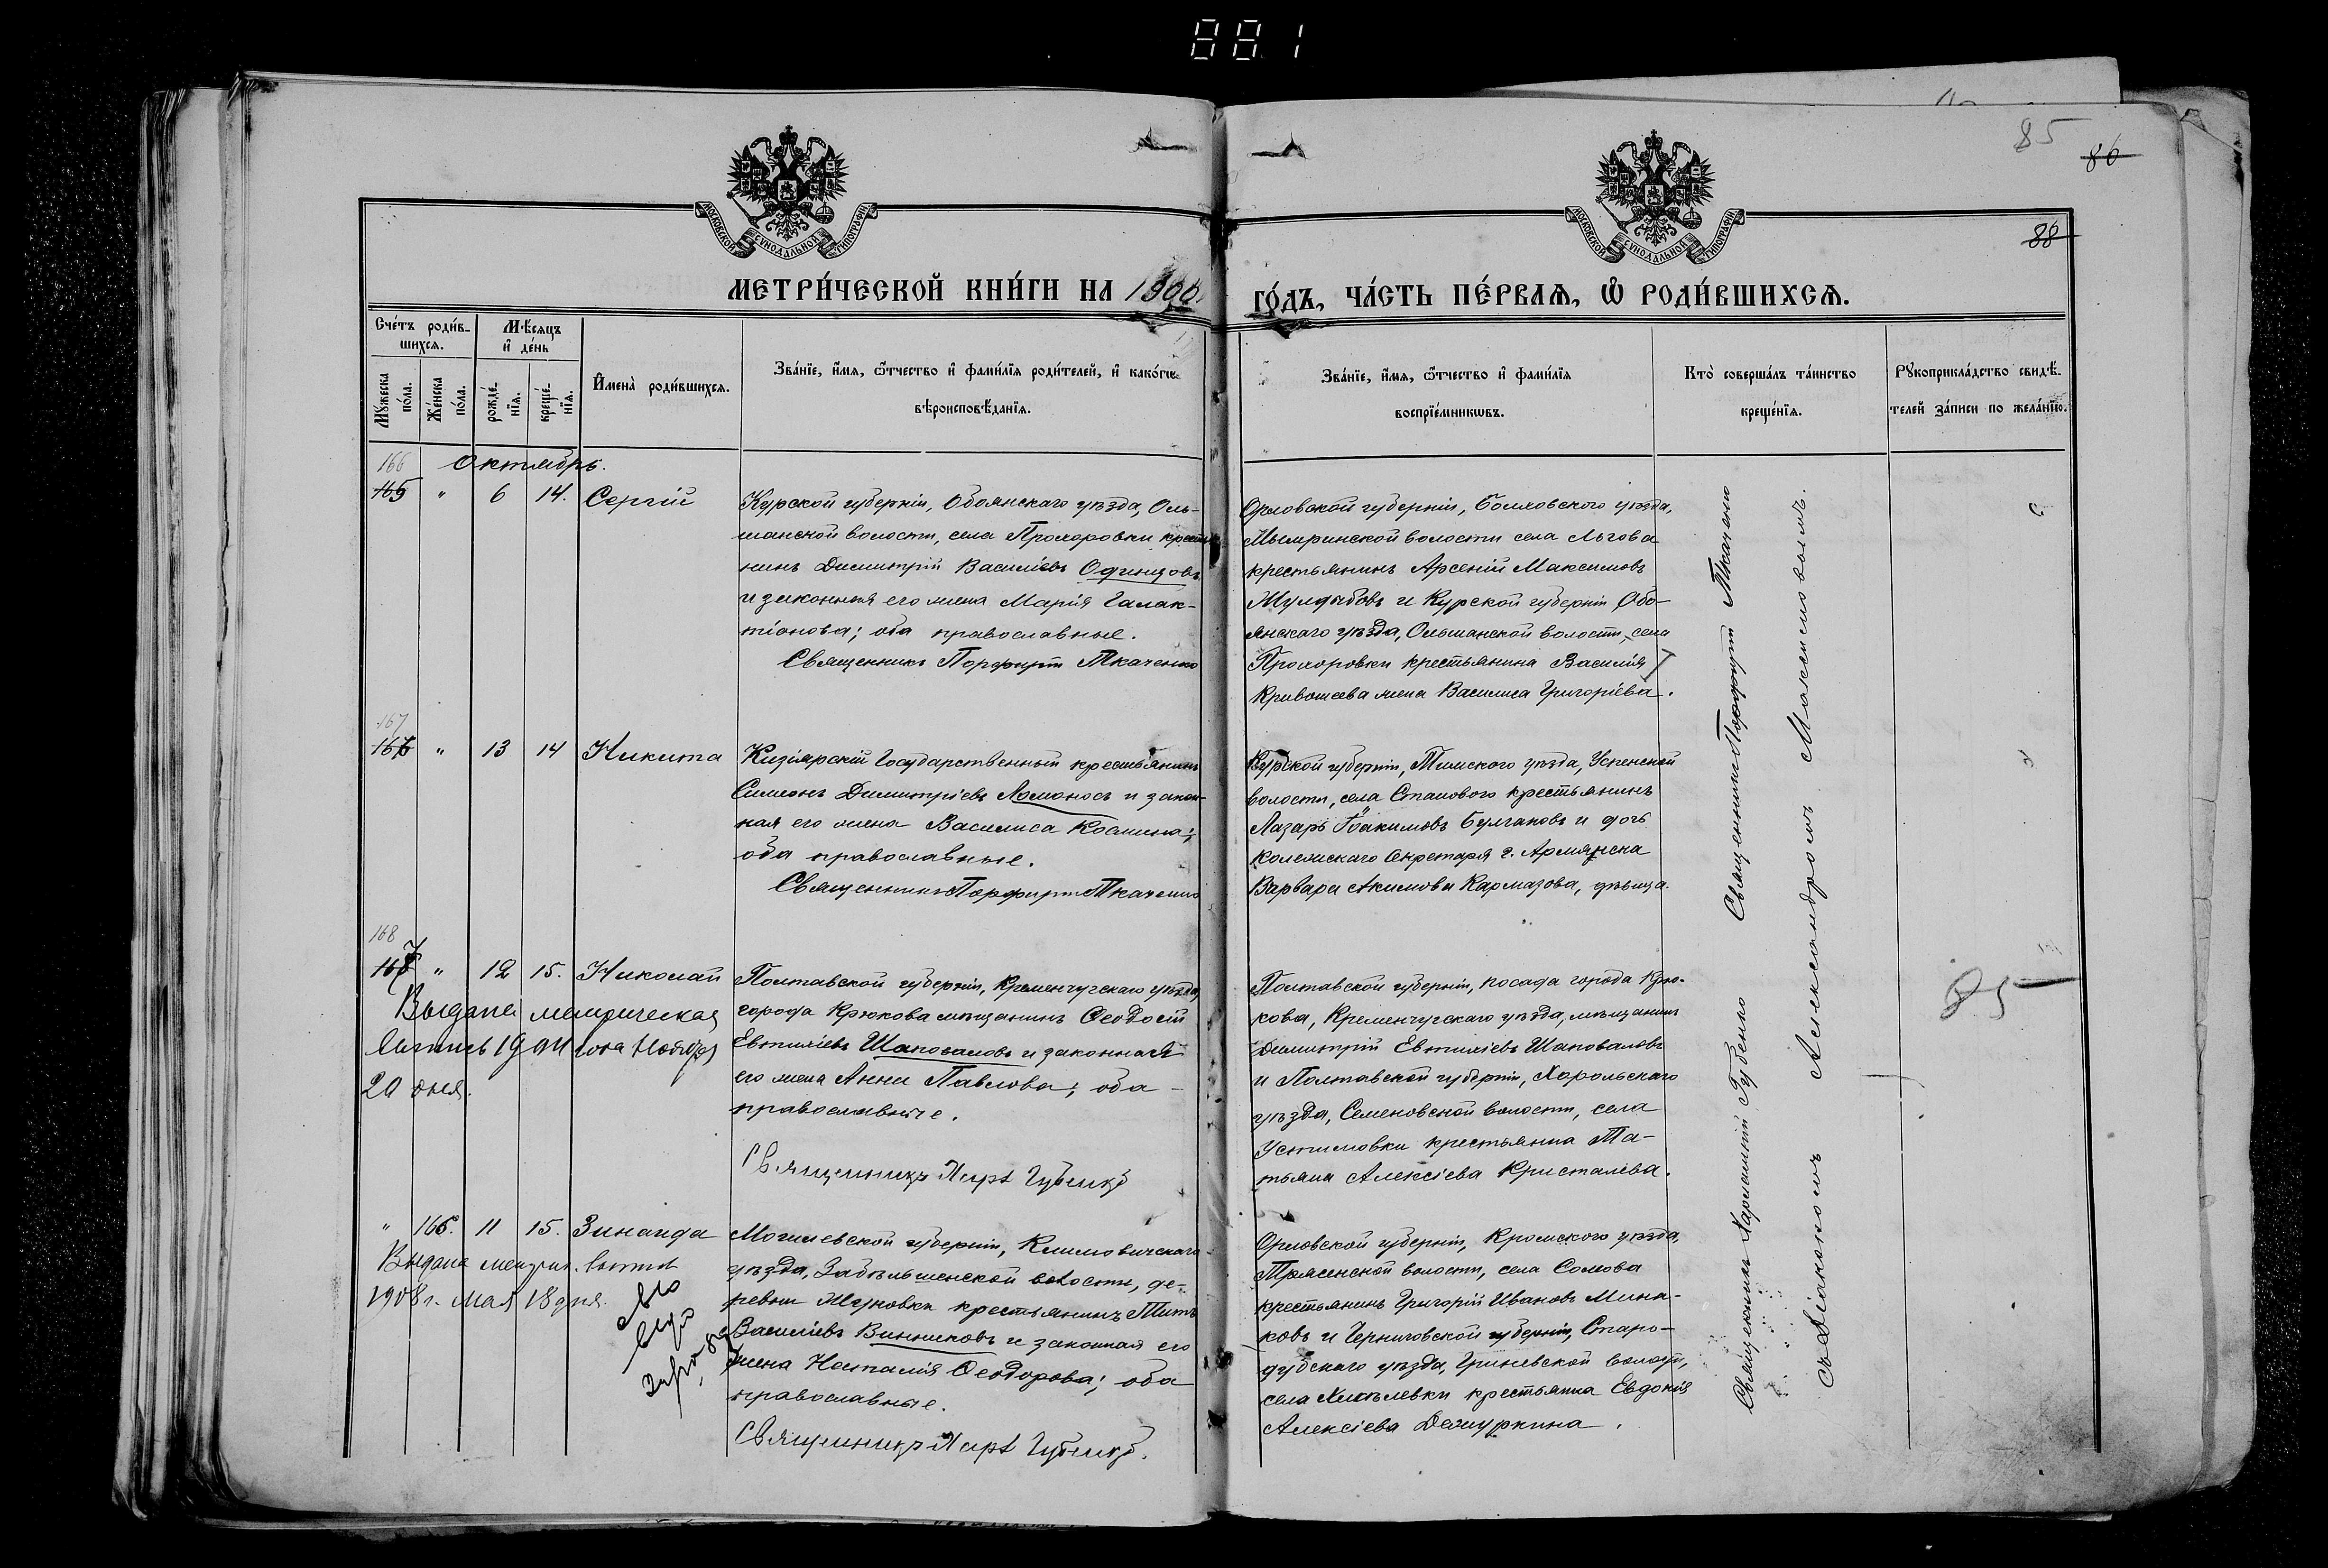 881
85
86
88
МОСКОВСКОЙ СУНОДАЛЬНОЙ ТИПОГРАФІИ
МОСКОВСКОЙ СУНОДАЛЬНОЙ ТИПОГРАФІИ
МЕТРИ́ЧЕСКОЙ КНИ́ГИ НА 1900
ГО́ДЪ, ЧА́СТЬ ПЕ́РВАѦ, Ѡ҆ РОДИ́ВШИХСѦ.
Сче́тъ роди́в-
шихсѧ.
Мꙋжеска по́ла.
Же́нска по́ла.
Мѣ́сѧцъ и҆ де́нь
рожде́нїѧ.
креще́нїѧ.
И҆мена̀ роди́вшихсѧ.
Зва́нїе, и҆́мѧ, ѻ҆́тчество и҆ фами́лїѧ роди́телей, и҆ како́гѡ
вѣроисповѣ́данїѧ.
Зва́нїе, и҆́мѧ, ѻ҆́тчество и҆ фами́лїѧ
воспрїе́мникѡвъ.
Кто̀ соверша́лъ та́инство
креще́нїѧ.
Рꙋкоприкла́дство свидѣ́-
телей за́писи по жела́нїю.
166 Октябрь.
165 " 6 14. Сергій
Курской губерніи, Обоянскаго уѣзда, Оль-
шанской волости, села Прохоровки крестья
нинъ Димитрій Василіевъ Одинцовъ
и законная его жена Марія Галак-
тіонова; оба православные.
Священникъ Порфирій Ткаченко
Орловской губерніи, Болховского уѣзда,
Мымринской волости села Льгова
крестьянинъ Арсеній Максимовъ
Жулдыбовъ и Курской губерніи Обо-
янскаго уѣзда, Ольшанской волости, села
Прохоровки крестьянина Василія
Кривошеева жена Василиса Григоріева.
167
166 " 13 14 Никита
Кизіярскій Государственный крестьянинъ
Симеонъ Димитріевъ Ломоносъ и закон-
ная его жена Василиса Космина;
оба православные.
Священникъ Порфирій Ткаченко
Курской губерніи, Тимского уѣзда, Успенской
волости, села Станового крестьянинъ
Лазарь Іоакимовъ Булгаковъ и дочь
Колежскаго Секретаря г. Армянска
Варвара Акимова Кармазова, дѣвица.
168
167 " 12 15. Николай
Выдана метрическая
Выпись 1911 года Ноября
20 дня.
Полтавской губерніи, Кременчугскаго уѣзда,
города Крюкова мѣщанинъ Ѳеодосій
Евтихіевъ Шаповаловъ и законная
его жена Анна Павлова; оба
православные.
Священникъ Харл Губенко
Полтавской губерніи, посада города Крю-
кова, Кременчугскаго уѣзда, мѣщанинъ
Димитрій Евтихіевъ Шаповаловъ
и Полтавской губерніи, Хорольскаго
уѣзда, Семеновской волости, села
Устимовки крестьянка Та-
тьяна Алексіева Кристалева.
85
" 165. 11 15. Зинаида
Выдана метрич. выпись
1908 г. мая 18 дня.
Могилевской губерніи, Климовичскаго
уѣзда, Забѣлышенской волости, де-
ревни Жуковки крестьянинъ Титъ
Василіевъ Винниковъ и законная его
жена Наталія Ѳеодорова; оба
православные.
Священникъ Харл Губенко.
Орловской губерніи, Кромскаго уѣзда,
волости, села Сомова
крестьянинъ Григорій Ивановъ Мина-
ковъ и Черниговской губерніи, Старо-
дубскаго уѣзда, Гриневской волости,
села крестьянка Евдокія
Алексіева Дежуркина.
Священникъ Порфирій Ткаченко
Священникъ Харлампій Губенко
съ Діакономъ Александромъ Максимовымъ.